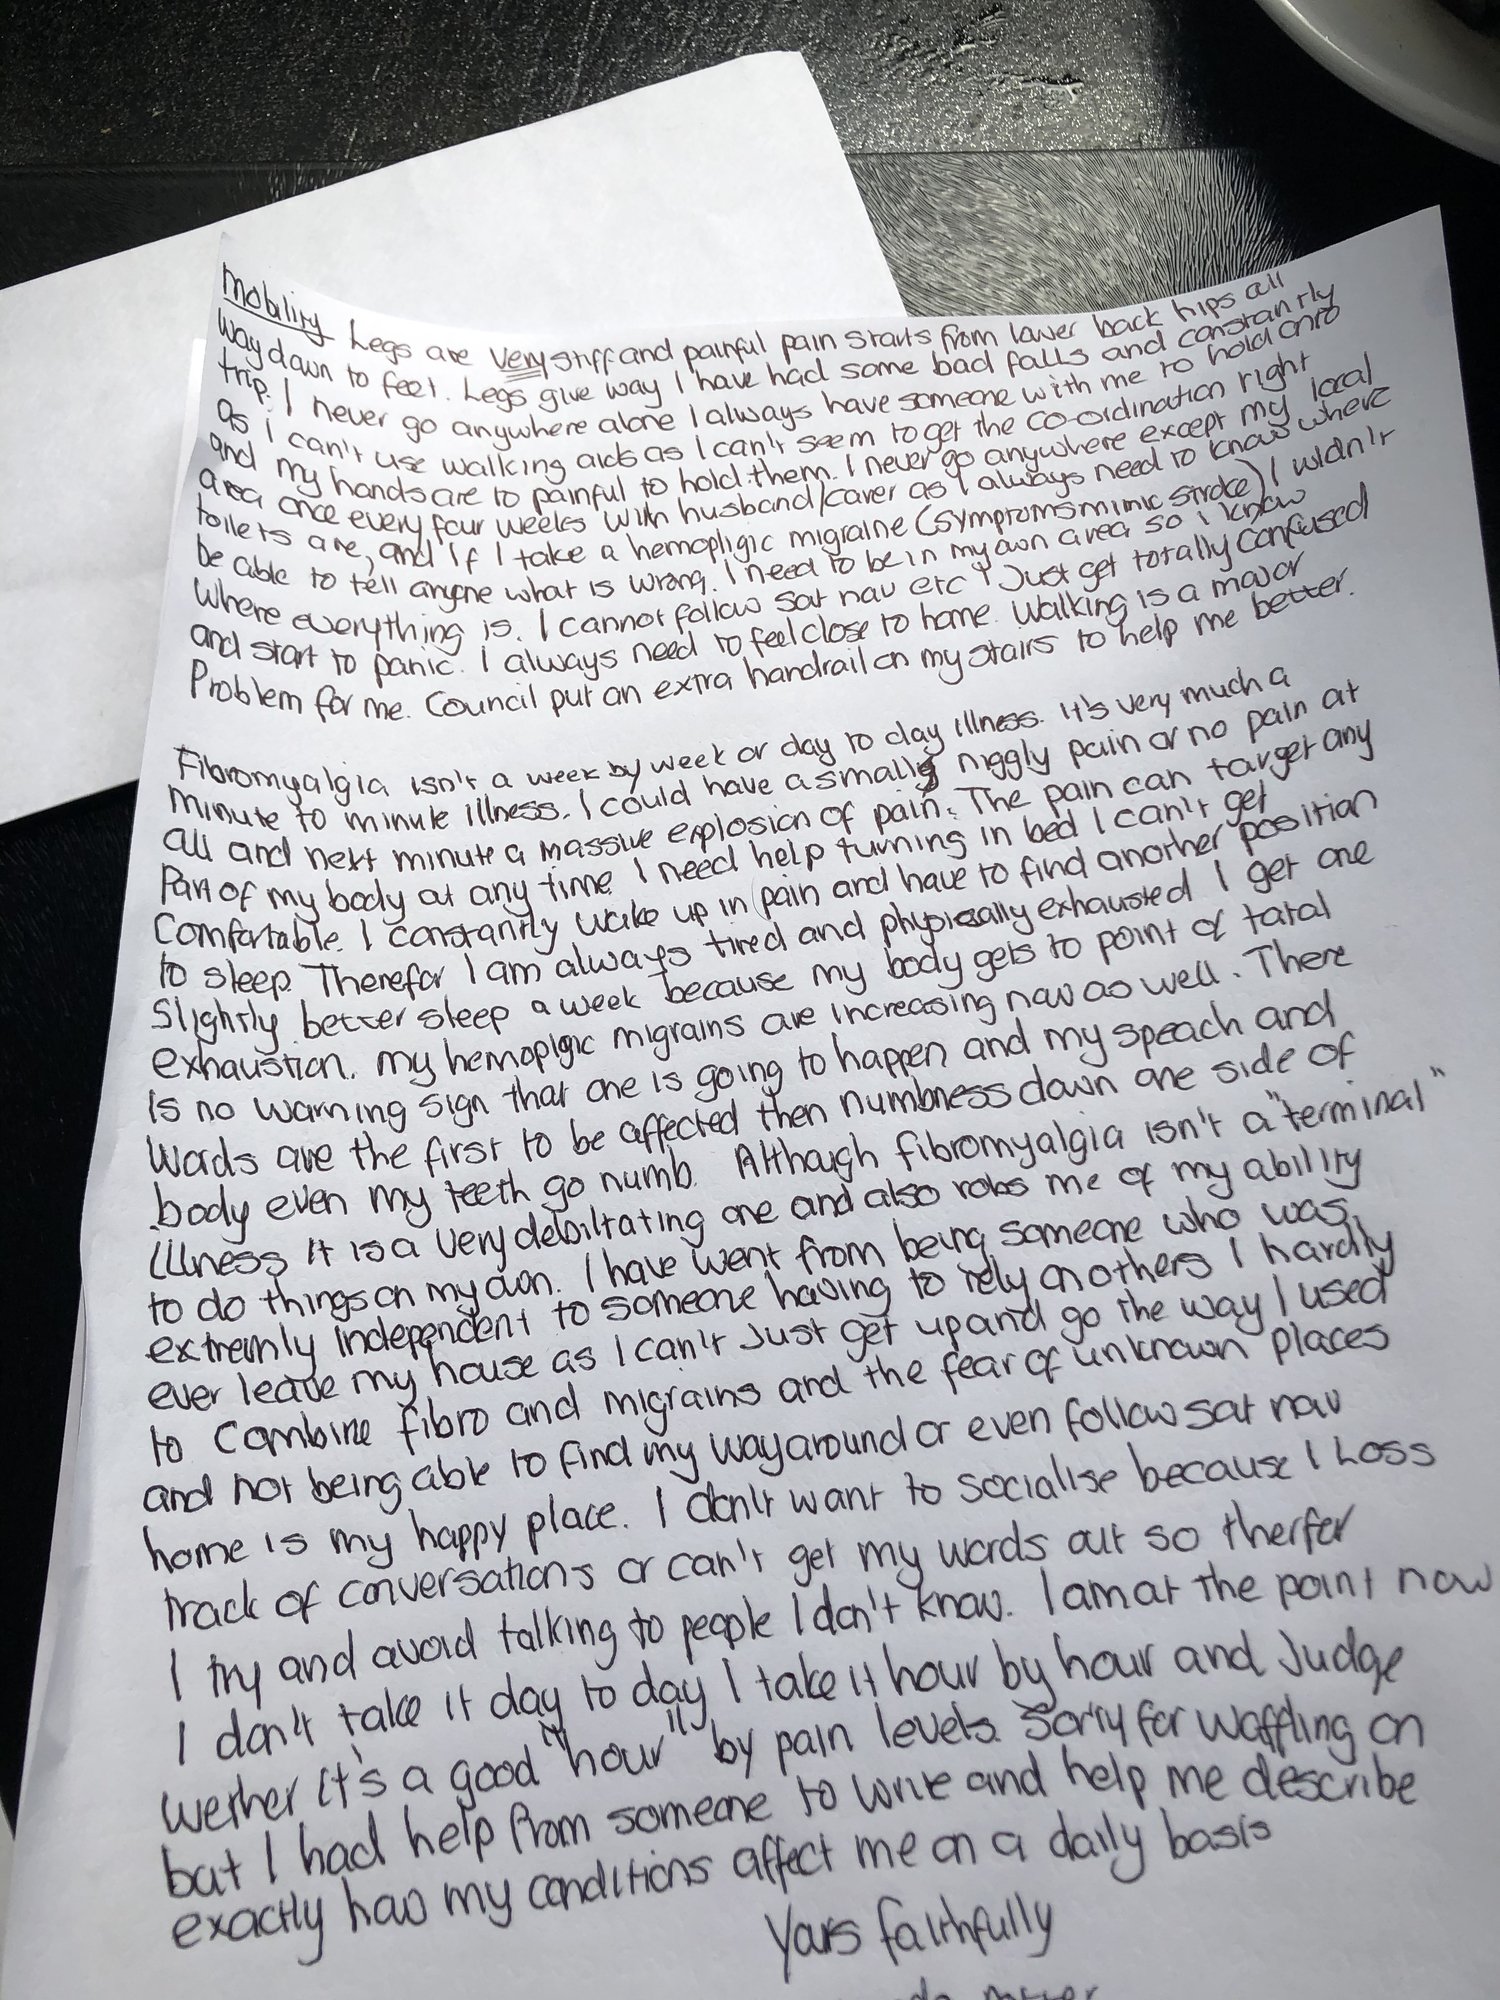 Mobility Legs are very stiff and painful pain starts from lower back hips all
way down to feet. Legs give way I have had some bad falls and constantly
trip. I never go anywhere alone I always have someone with me to hold onto
as I can't use walking aids as I can't seem to get the co-ordination right
and my hands are to painful to hold them. I never go anywhere except my local
area once every four weeks with husband/carer as I always need to know where
toilets are, and if I take a hemopligic migraine (symptoms mimic stroke) I wldn't
be able to tell anyone what is wrong. I need to be in my own area so i know
where everything is. I cannot follow sat nav etc I Just get totally confused
and start to panic. I always need to feel close to home. Walking is a major
Problem for me. Council put an extra handrail on my stairs to help me better.
Fibromyalgia isn't a week by week or day to day illness. It's very much a
minute to minute illness. I could have a small niggly pain or no pain at
all and next minute a massive explosion of pain. The pain can target any
Part of my body at any time I need help turning in bed I can't get
Comfortable. I constantly wake up in pain and have to find another position
to sleep. Therefor I am always tired and physically exhausted I get one
Slightly better sleep a week because my body gets to point of total
exhaustion. my hemoplgic migrains are increasing now as well. There
is no warning sign that one is going to happen and my speach and
Words are the first to be affected then numbness down one side of
body even my teeth go numb. Although fibromyalgia isn't a "terminal"
illness it is a very debiltating one and also robs me of my ability
to do things on my own. I have went from being someone who was
extreamly independent to someone having to rely on others I hardly
ever leave my house as I can't Just get up and go the way I used
to Combine fibro and migrains and the fear of unknown places
and not being able to find my way around or even follow sat nav
home is my happy place. I don't want to socialise because I Loss
track of conversations or can't get my words out so therfer
I try and avoid talking to people I don't know. I am at the point now
I don't take it day to day I take it hour by hour and Judge
wether it's a good "hour" by pain levels. Sorry for waffling on
but I had help from someone to write and help me describe
exactly how my conditions affect me on a daily basis
Yours faithfully